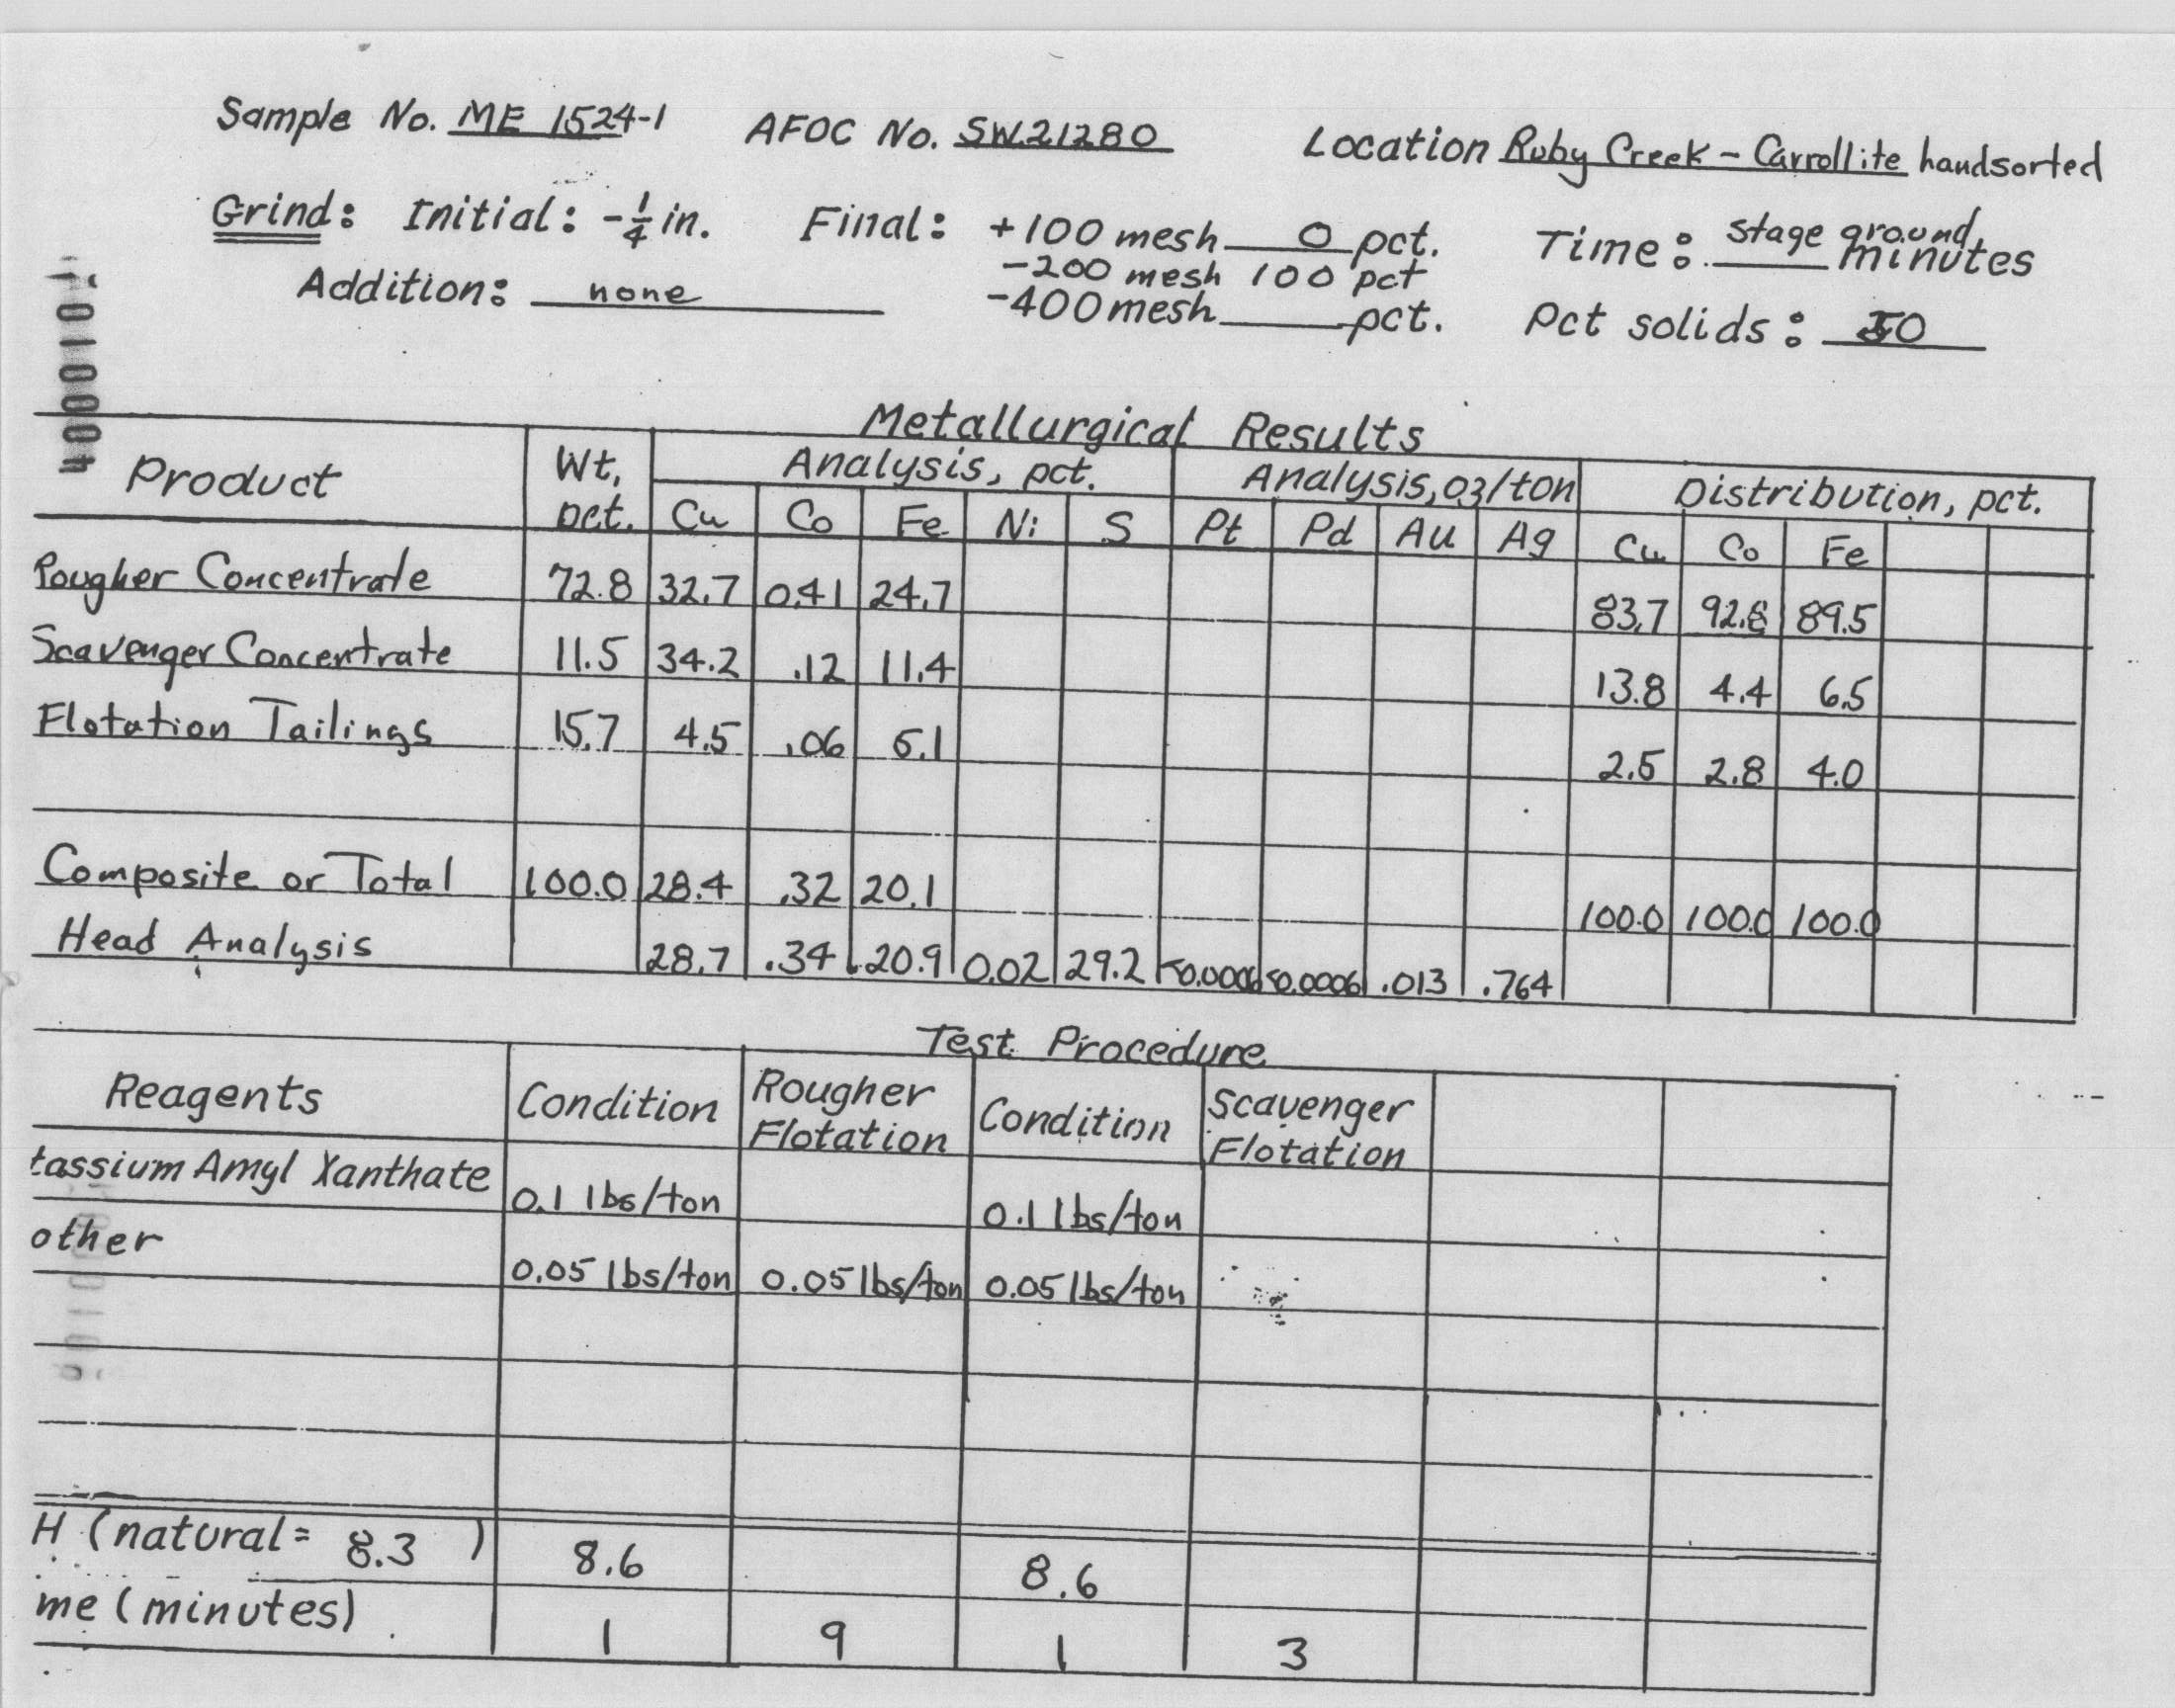 Sample No. ME 1524-1 AFOC No. SW21280 Location Ruby Creek - Carrollite handsorted
Grind: Initial: -1/4 in. Final: +100 mesh 0 pct. Time: stage ground minutes
-200 mesh 100 pct
Addition: none -400 mesh pct. Pct solids: 50
Metallurgical Results
Product Wt, pct. Analysis, pct. Analysis, oz/ton Distribution, pct.
Cu Co Fe Ni S Pt Pd Au Ag Cu Co Fe
Rougher Concentrate 72.8 32.7 0.41 24.7 83.7 92.8 89.5
Scavenger Concentrate 11.5 34.2 .12 11.4 13.8 4.4 6.5
Flotation Tailings 15.7 4.5 .06 5.1 2.5 2.8 4.0
Composite or Total 100.0 28.4 .32 20.1 100.0 100.0 100.0
Head Analysis 28.7 .34 20.9 0.02 29.2 <0.0006 <0.0006 .013 .764
Test Procedure
Reagents Condition Rougher Flotation Condition Scavenger Flotation
tassium Amyl Xanthate 0.1 lbs/ton 0.1 lbs/ton
other 0.05 lbs/ton 0.05 lbs/ton 0.05 lbs/ton
H (natural = 8.3 ) 8.6 8.6
me (minutes) 1 9 1 3